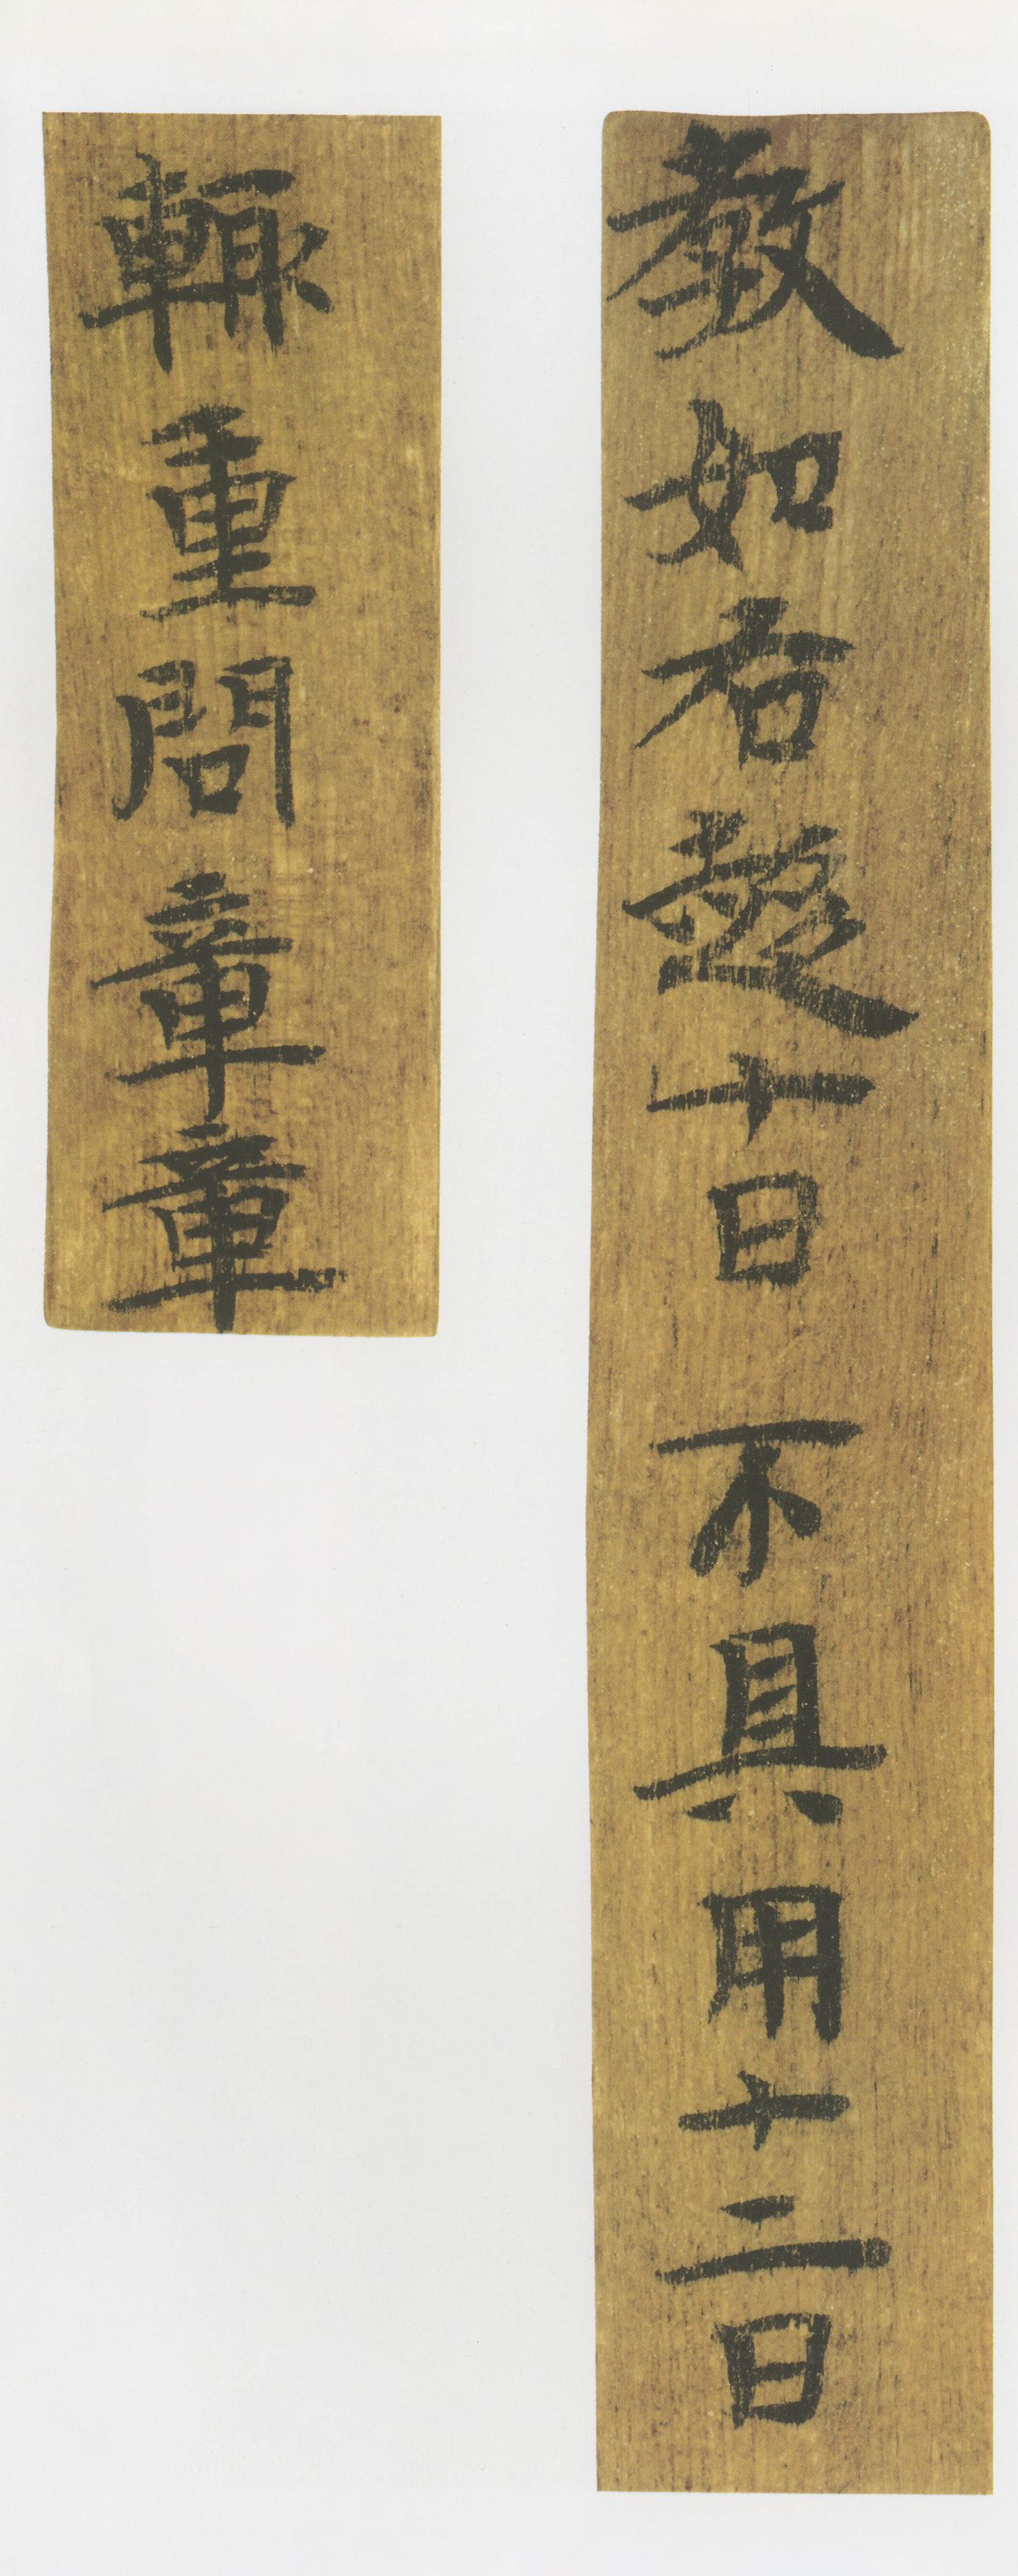 教如右 十日 不具用十二日
輒重問章章